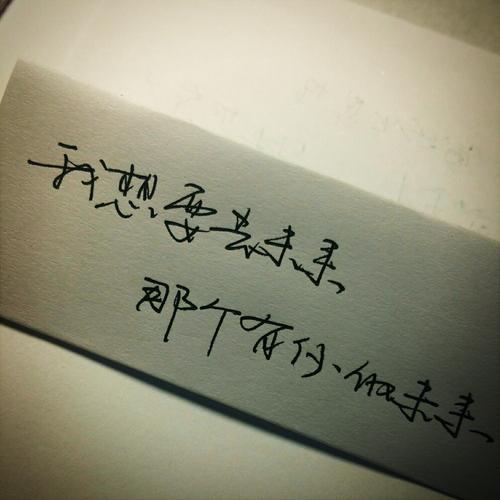 我想要去未来、
那个有你、他的未来、